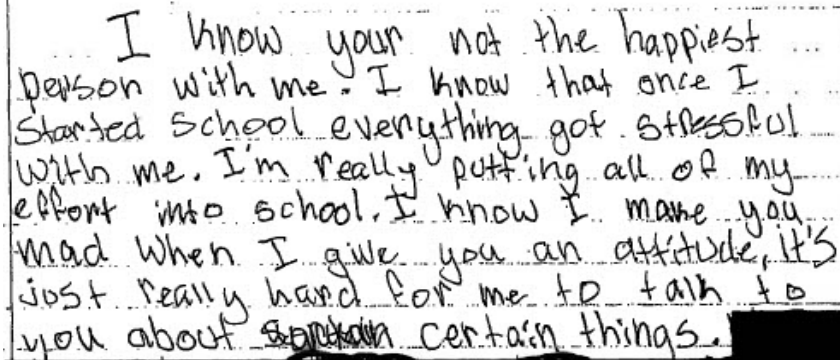 I know your not the happiest
person with me. I know that once I
started school everything got stressful
with me. I'm really putting all of my
effort into school. I know I make you
mad when I give you an attitude, it's
just really hard for me to talk to
you about certain things.